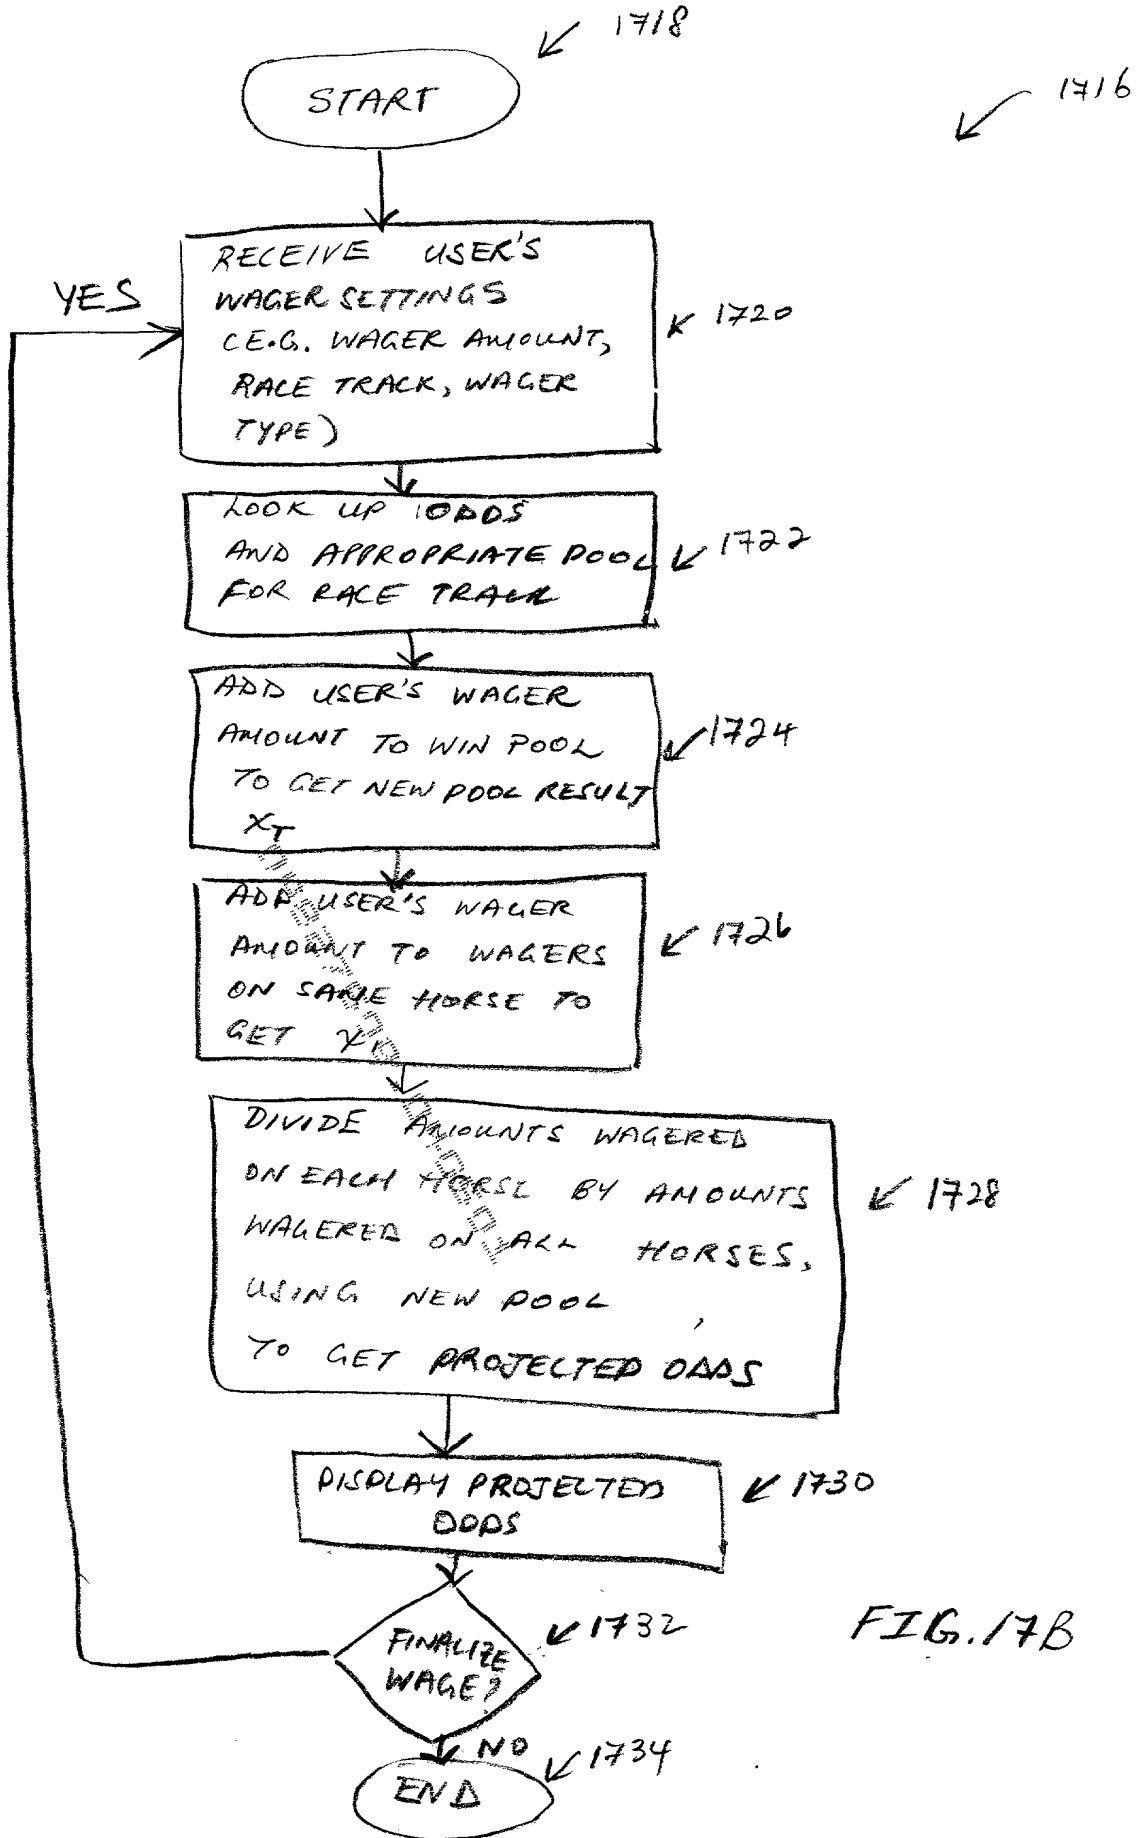 1718
1716
START
YES
RECEIVE USER'S
WAGER SETTINGS
(E.G. WAGER AMOUNT,
RACE TRACK, WAGER
TYPE)
1720
LOOK UP ODDS
AND APPROPRIATE POOL
FOR RACE TRACK
1722
ADD USER'S WAGER
AMOUNT TO WIN POOL
TO GET NEW POOL RESULT
X_T
1724
ADD USER'S WAGER
AMOUNT TO WAGERS
ON SAME HORSE TO
GET X_1
1726
DIVIDE AMOUNTS WAGERED
ON EACH HORSE BY AMOUNTS
WAGERED ON ALL HORSES,
USING NEW POOL,
TO GET PROJECTED ODDS
1728
DISPLAY PROJECTED
ODDS
1730
FINALIZE
WAGE?
1732
NO
END
1734
FIG. 17B